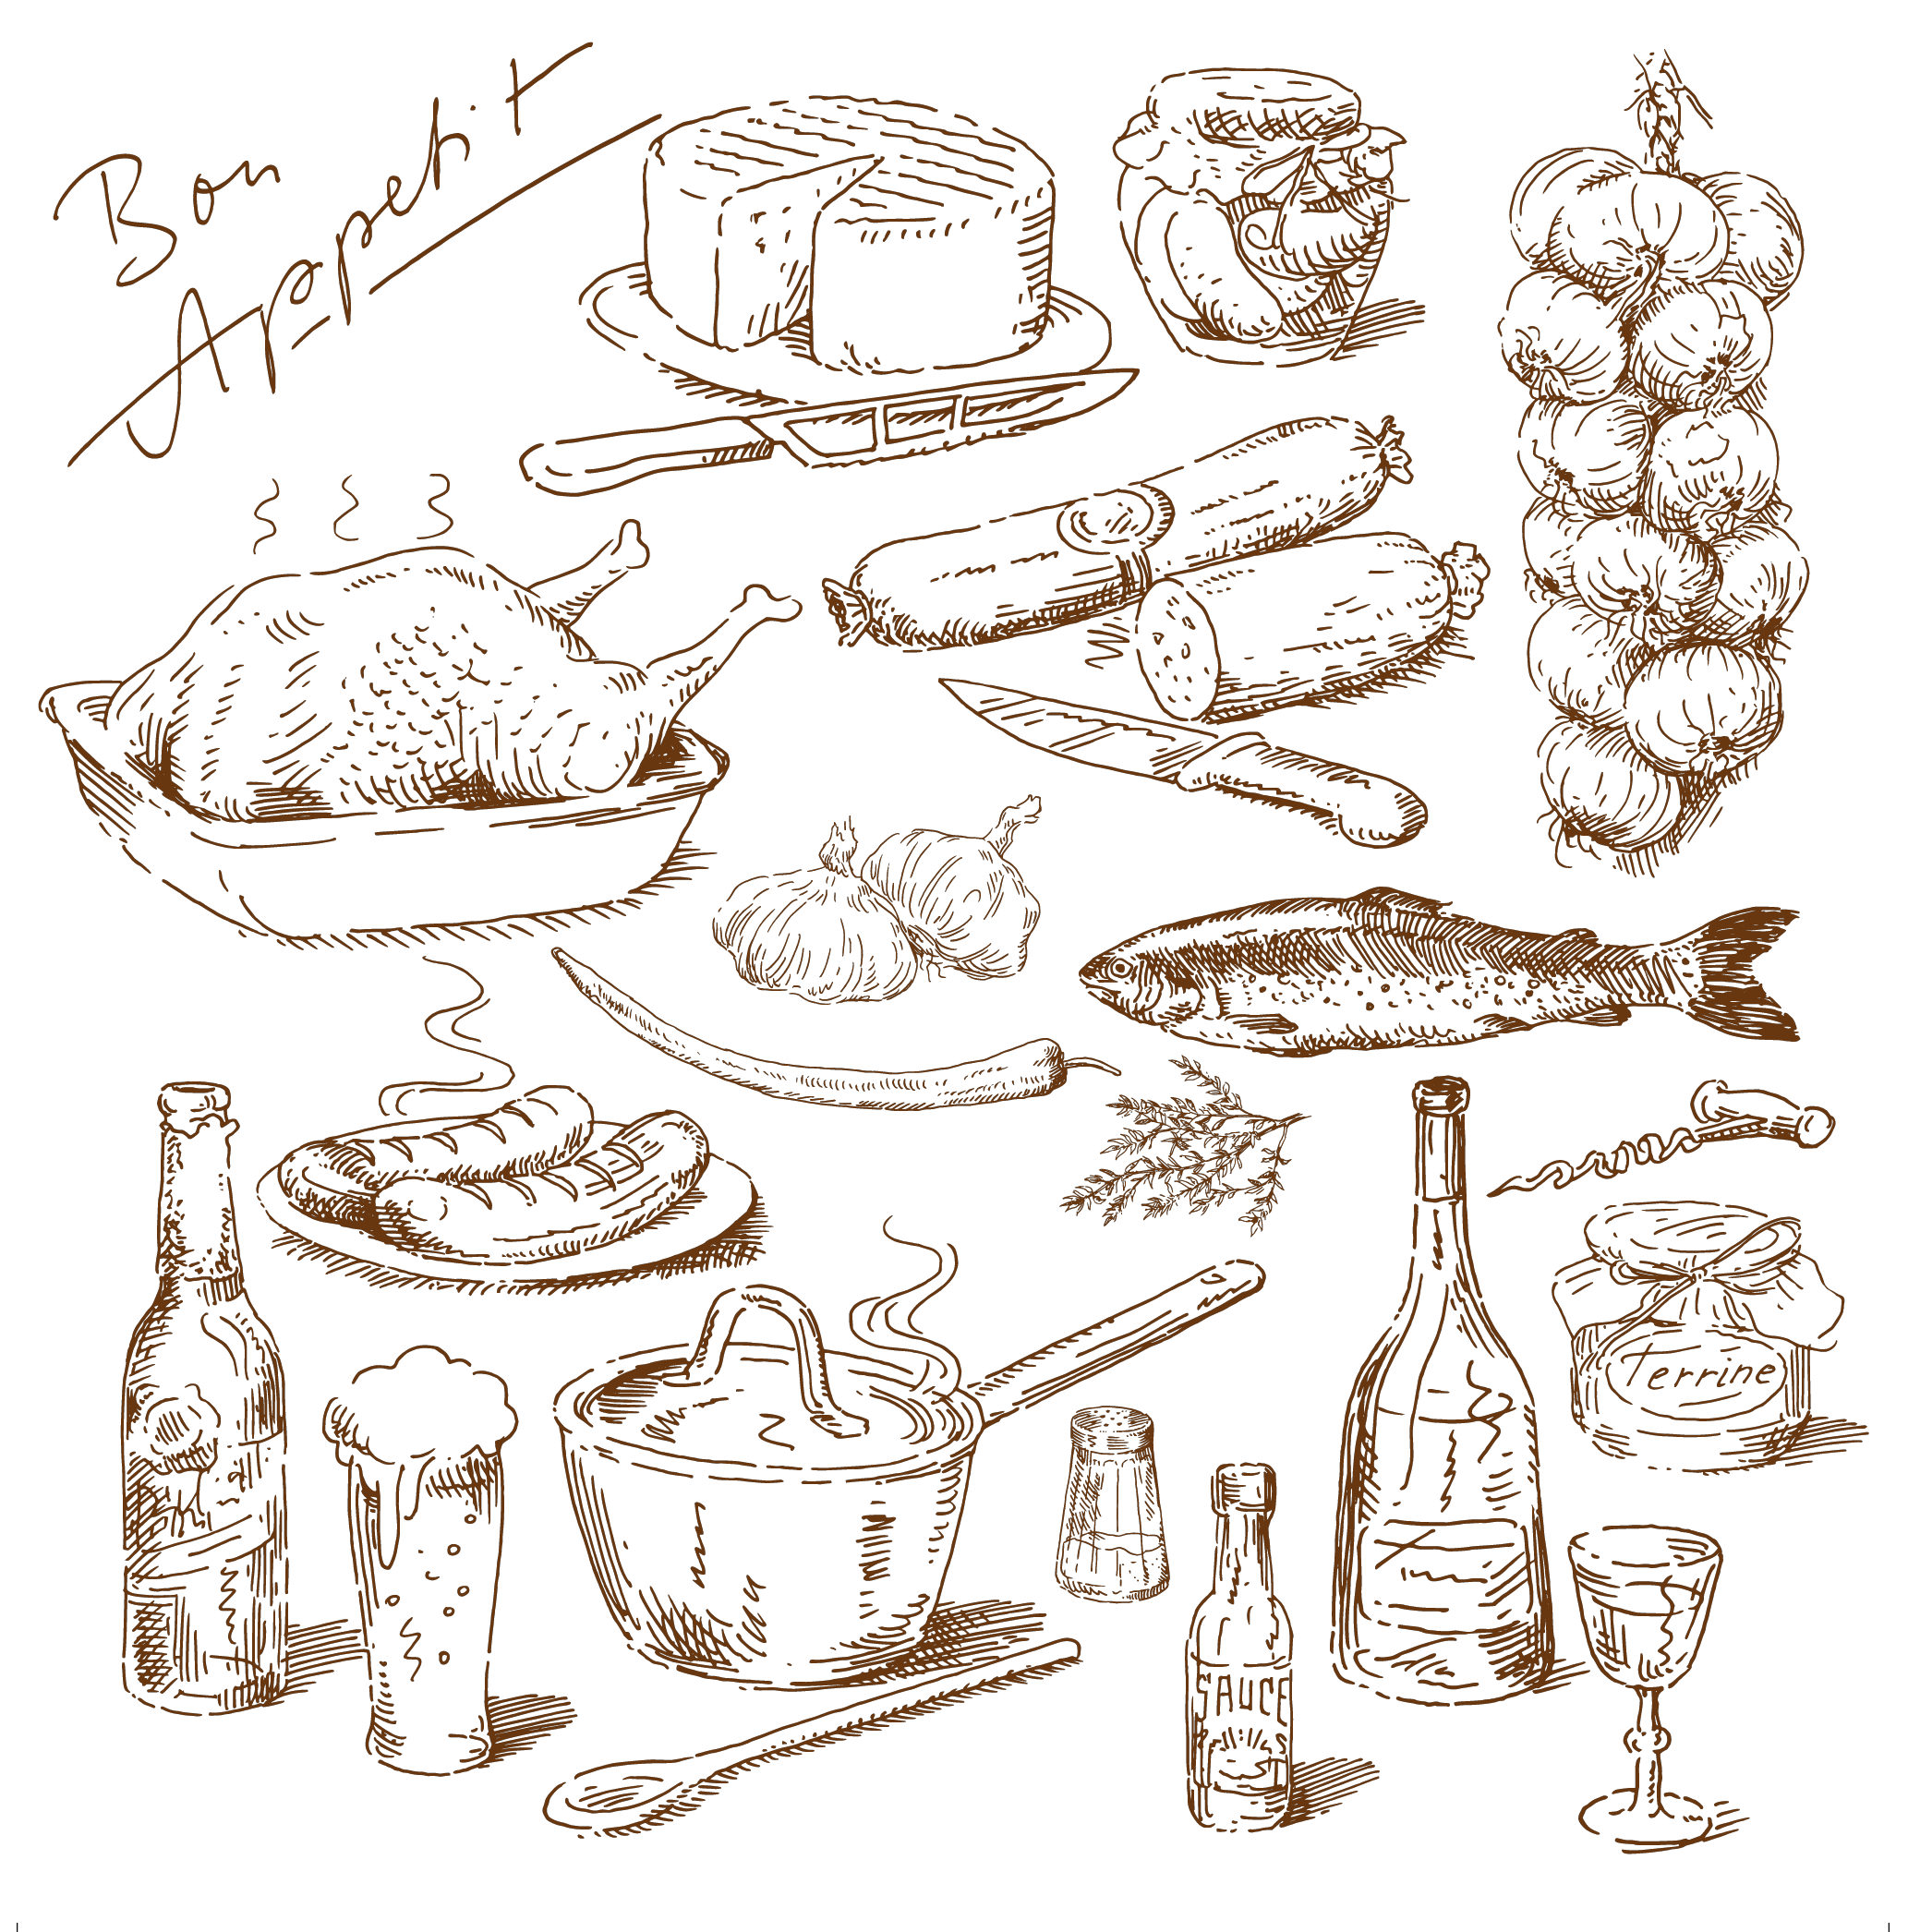 Bon
Appetit
Terrine
SAUCE